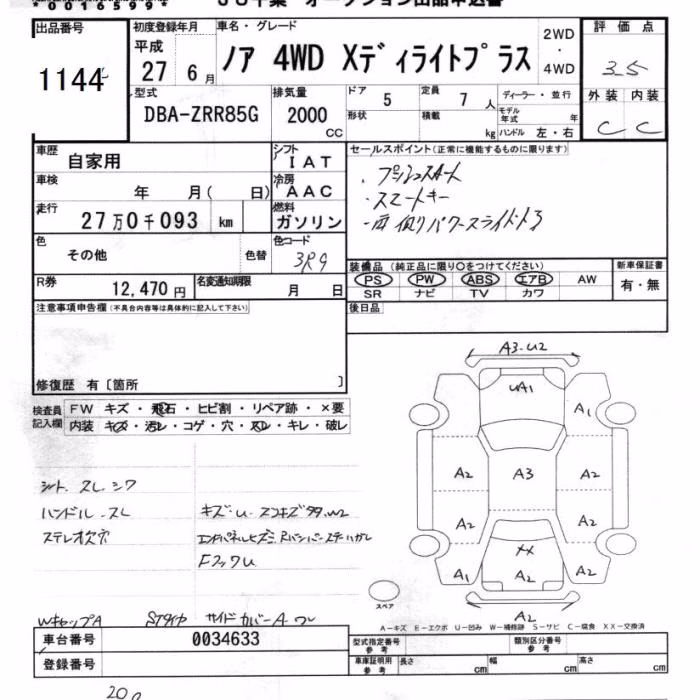 00165999 JU千葉 オークション出品申込書
出品番号 初度登録年月 車名・グレード 2WD・4WD 評価点
1144 平成 27 6月 ノア 4WD Xディライトプラス 3.5
型式 排気量 ドア 定員 ディーラー・並行 外装 内装
DBA-ZRR85G 2000 CC 5 7人 モデル年式 年 C C
形状 積載 kg ハンドル 左・右
車歴 自家用 シフト IAT セールスポイント(正常に機能するものに限ります)
車検 年 月( 日) 冷房 AAC ・プッシュスタート
・スマートキー
走行 27万0千093 km 燃料 ガソリン ・片側パワースライドドア
色 その他 色替 色コード 3R9
装備品(純正品に限り○をつけてください) 新車保証書
PS PW ABS エアB AW 有・無
SR ナビ TV カワ
R券 12,470円 名変通知期限 月 日
後日品
注意事項申告欄(不具合内容等は具体的に記入して下さい)
修復歴 有〔箇所 〕
検査員記入欄 FW キズ・飛石・ヒビ割・リペア跡・×要
内装 キズ・汚レ・コゲ・穴・スレ・キレ・破レ
A3・U2
UA1
A1
A2 A3 A2
A2 A2
XX
A1 A2 A2
A2
スペア
シート スレ シワ
ハンドル スレ
キズ・U・エクボキズ
ステレオ欠穴
エンドパネルヒズミ Rバンパーステーハガレ
FフックU
WキャップA STタイヤ サイドカバーA ワレ
A-キズ E-エクボ U-凹み W-補修跡 S-サビ C-腐食 XX-交換済
車台番号 0034633 型式指定番号 参考 類別区分番号 参考
登録番号 車庫証明用 参考 長さ cm 幅 cm 高さ cm
200